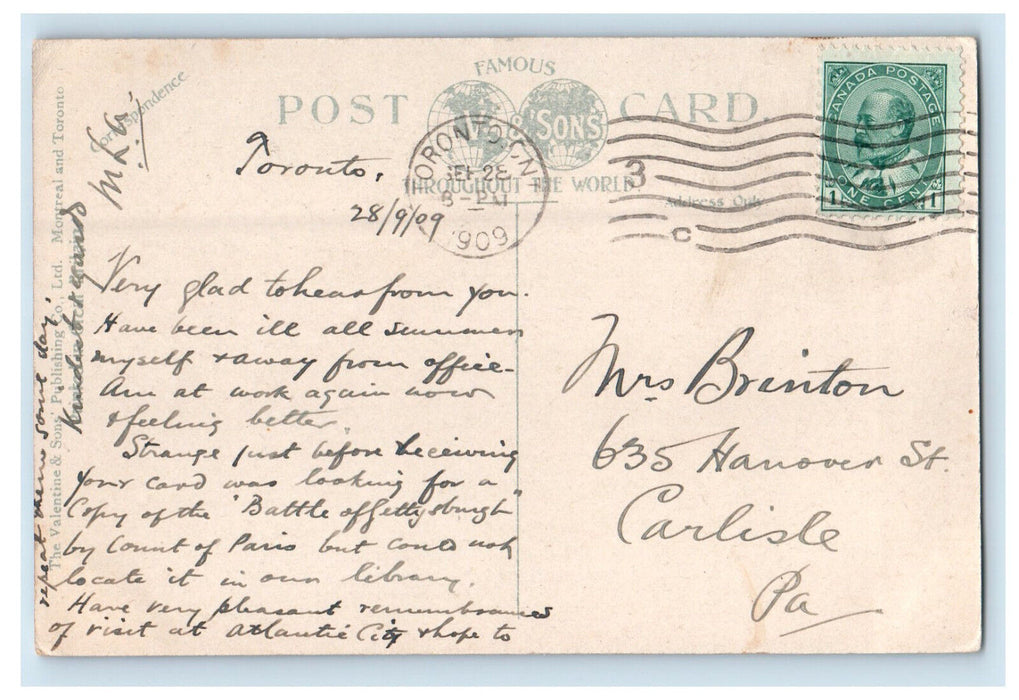 FAMOUS
POST CARD.
& SONS
THROUGHOUT THE WORLD
Correspondence
Address Only
CANADA POSTAGE
ONE CENT
1 1
TORONTO CN
SEP 28
8-PM
1909
3
C
Toronto,
28/9/09
Very glad to hear from you.
Have been ill all summer
myself & away from office-
Am at work again now
& feeling better.
Strange just before receiving
your card was looking for a
Copy of the "Battle of Gettysburgh"
by Count of Paris but could not
locate it in our library.
Have very pleasant remembrances
of visit at Atlantic City & hope to
repeat them some day.
Kindest regards
Mrs Brinton
635 Hanover St.
Carlisle
Pa
The Valentine & Sons' Publishing Co., Ltd. Montreal and Toronto